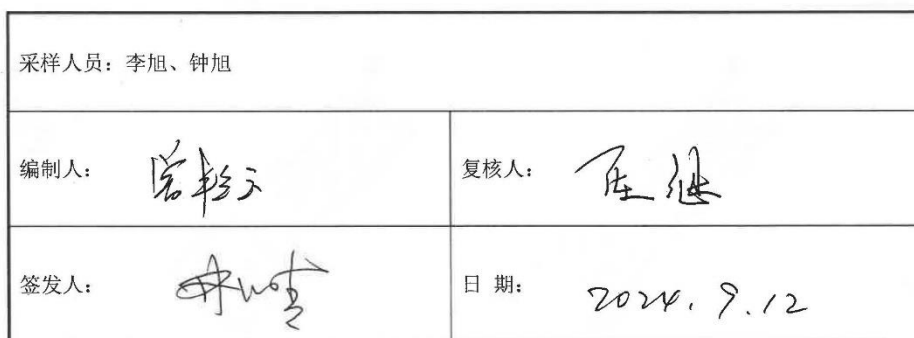 采样人员：李旭、钟旭
编制人：
复核人：
签发人：
日 期： 2024.9.12